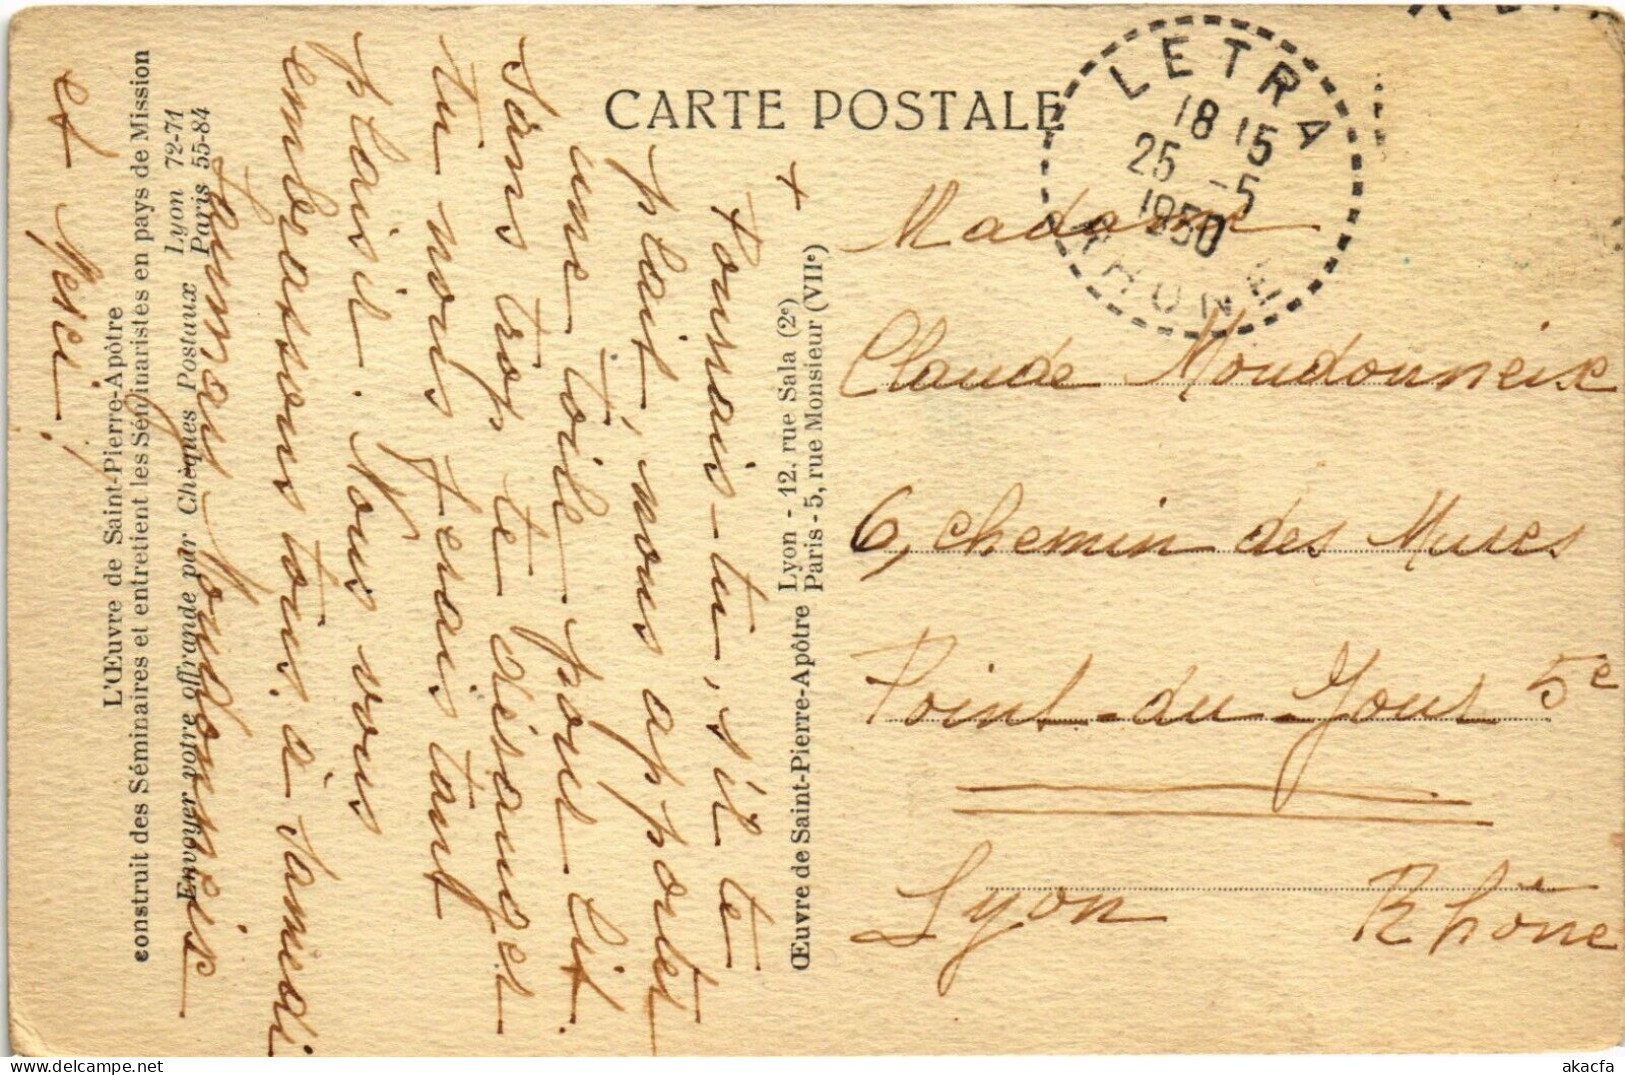 CARTE POSTALE
LETRA
18 15
25 -5
1950
RHONE
Madame
Claude Moudonneix
6, chemin des Mures
Point-du-Jour 5e
Lyon Rhône
Œuvre de Saint-Pierre-Apôtre
Lyon - 12, rue Sala (2e)
Paris - 5, rue Monsieur (VIIe)
+
Pourrais-tu, s'il te
plait, nous apporter
une toile pour lit.
Sans trop te déranger
tu nous ferais tant
plaisir. Nous vous
embrassons tous, à samedi
Moudonneix
et Merci!
L'Œuvre de Saint-Pierre-Apôtre
construit des Séminaires et entretient les Séminaristes en pays de Mission
Envoyer votre offrande par Chèques Postaux
Lyon 72-71
Paris 55-84
akacfa